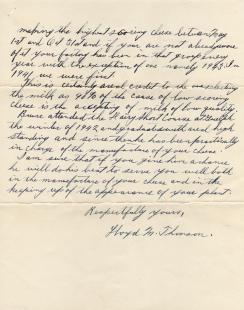 making the highest scoring cheese between May
1st and Oct 31st and if you are not already aware
of it your factory has been in that group every
year with the exception of one namely 1943. In
1941 we were first.
This is certainly a real credit to the one selecting
the milk as 90% of the cause of low scoring
cheese is the accepting of milk of poor quality.
Bruce attended the Dairy Short Course at Guelph
the winter of 1942 and graduated with real high
standing and since then he has been practically
in charge of the manufacture of your cheese.
I am sure that if you give him a chance
he will do his best to serve you well both
in the manufacture of your cheese and in the
keeping up of the appearance of your plant.
Respectfully yours,
Lloyd M. Thomson.